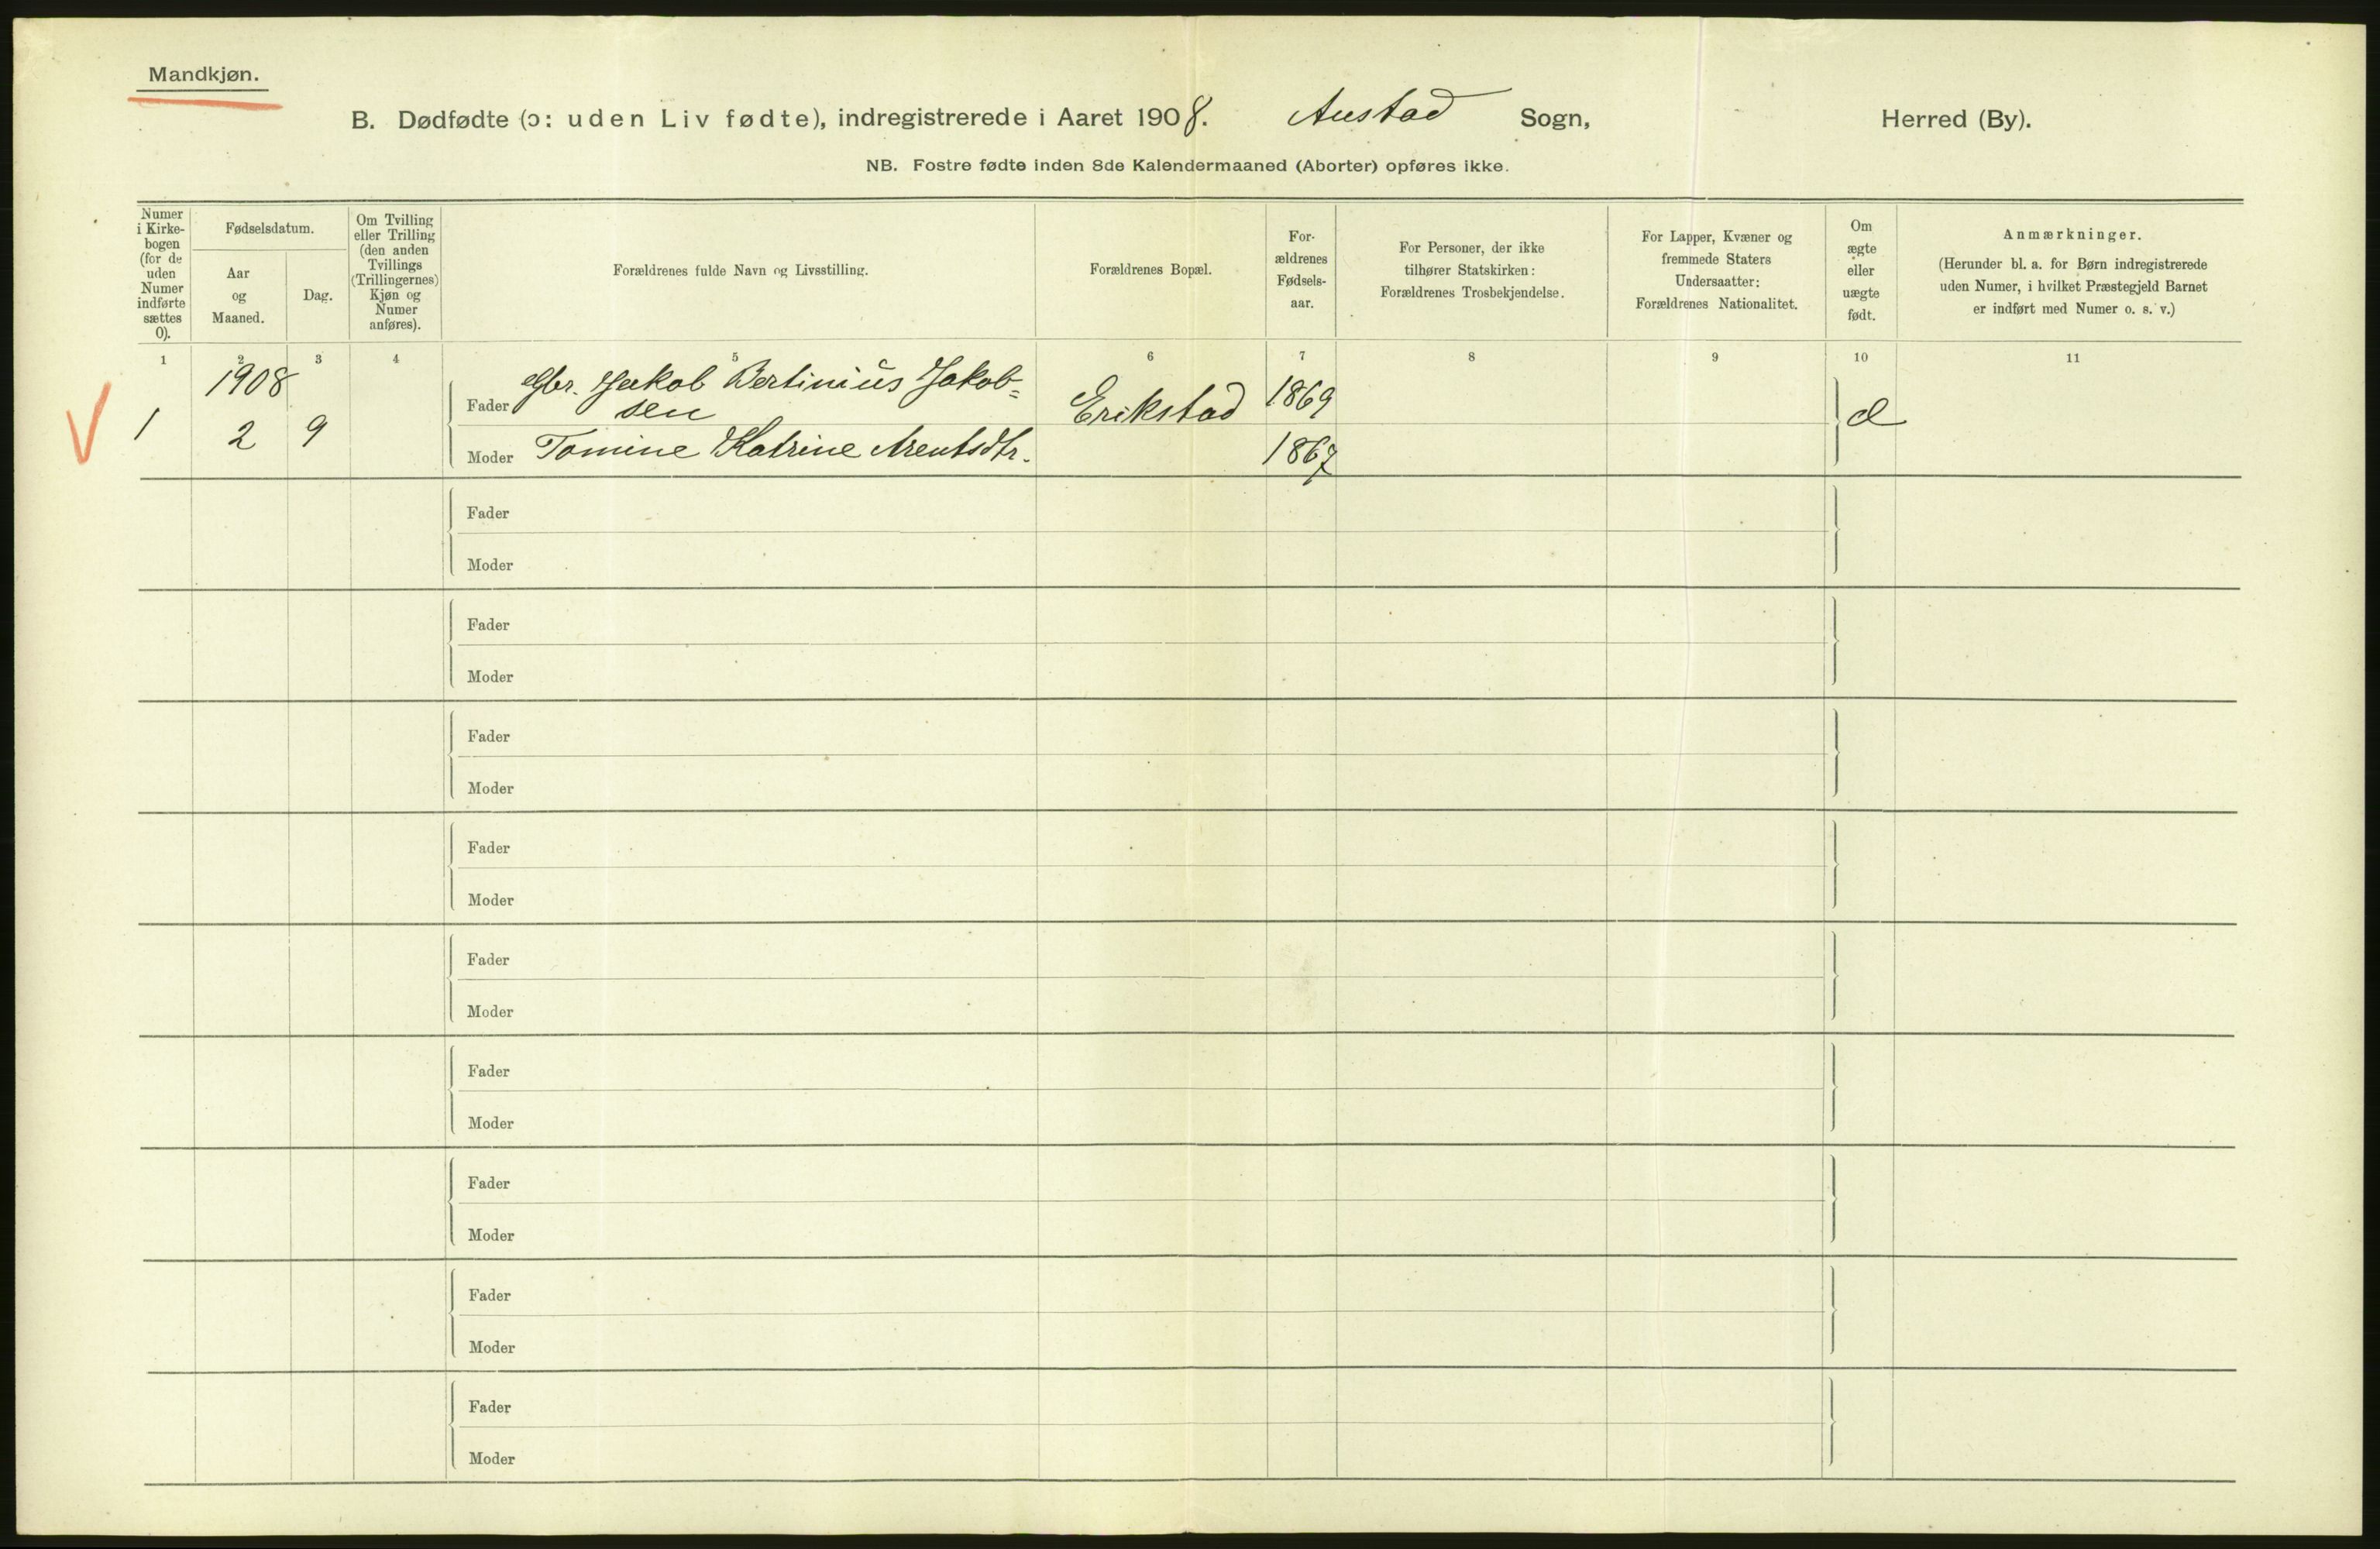 Mandkjøn.
B. Dødfødte (ɔ: uden Liv fødte), indregistrerede i Aaret 1908. Austad Sogn, Herred (By).
NB. Fostre fødte inden 8de Kalendermaaned (Aborter) opføres ikke.
Numer
i Kirke-
bogen
(for de
uden
Numer
indførte
sættes
0).
Fødselsdatum.
Aar
og
Maaned.
Dag.
Om Tvilling
eller Trilling
(den anden
Tvillings
(Trillingernes)
Kjøn og
Numer
anføres).
Forældrenes fulde Navn og Livsstilling.
Forældrenes Bopæl.
For-
ældrenes
Fødsels-
aar.
For Personer, der ikke
tilhører Statskirken:
Forældrenes Trosbekjendelse.
For Lapper, Kvæner og
fremmede Staters
Undersaatter:
Forældrenes Nationalitet.
Om
ægte
eller
uægte
født.
Anmærkninger.
(Herunder bl. a. for Børn indregistrerede
uden Numer, i hvilket Præstegjeld Barnet
er indført med Numer o. s. v.)
1 2 3 4 5 6 7 8 9 10 11
1908
1 2 9
Fader Gbr. Jakob Bertinius Jakob=
sen
Erikstad 1869
Moder Tomine Katrine Arentsdtr. 1867
Fader
Moder
Fader
Moder
Fader
Moder
Fader
Moder
Fader
Moder
Fader
Moder
Fader
Moder
Fader
Moder
Fader
Moder